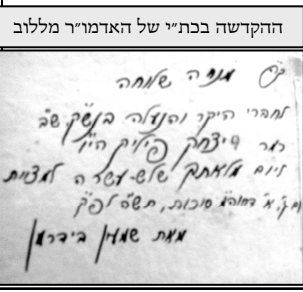 ההקדשה בכת״י של האדמו״ר מללוב
מנחה שלוחה
לחברי היקר והנעלה בנש״ק
יצחק הי״ו
ליום מלאותך שלש עשרה למצוות
א׳ דחוה״מ סוכות, לפ״ק
מאת שמעון בידרמן